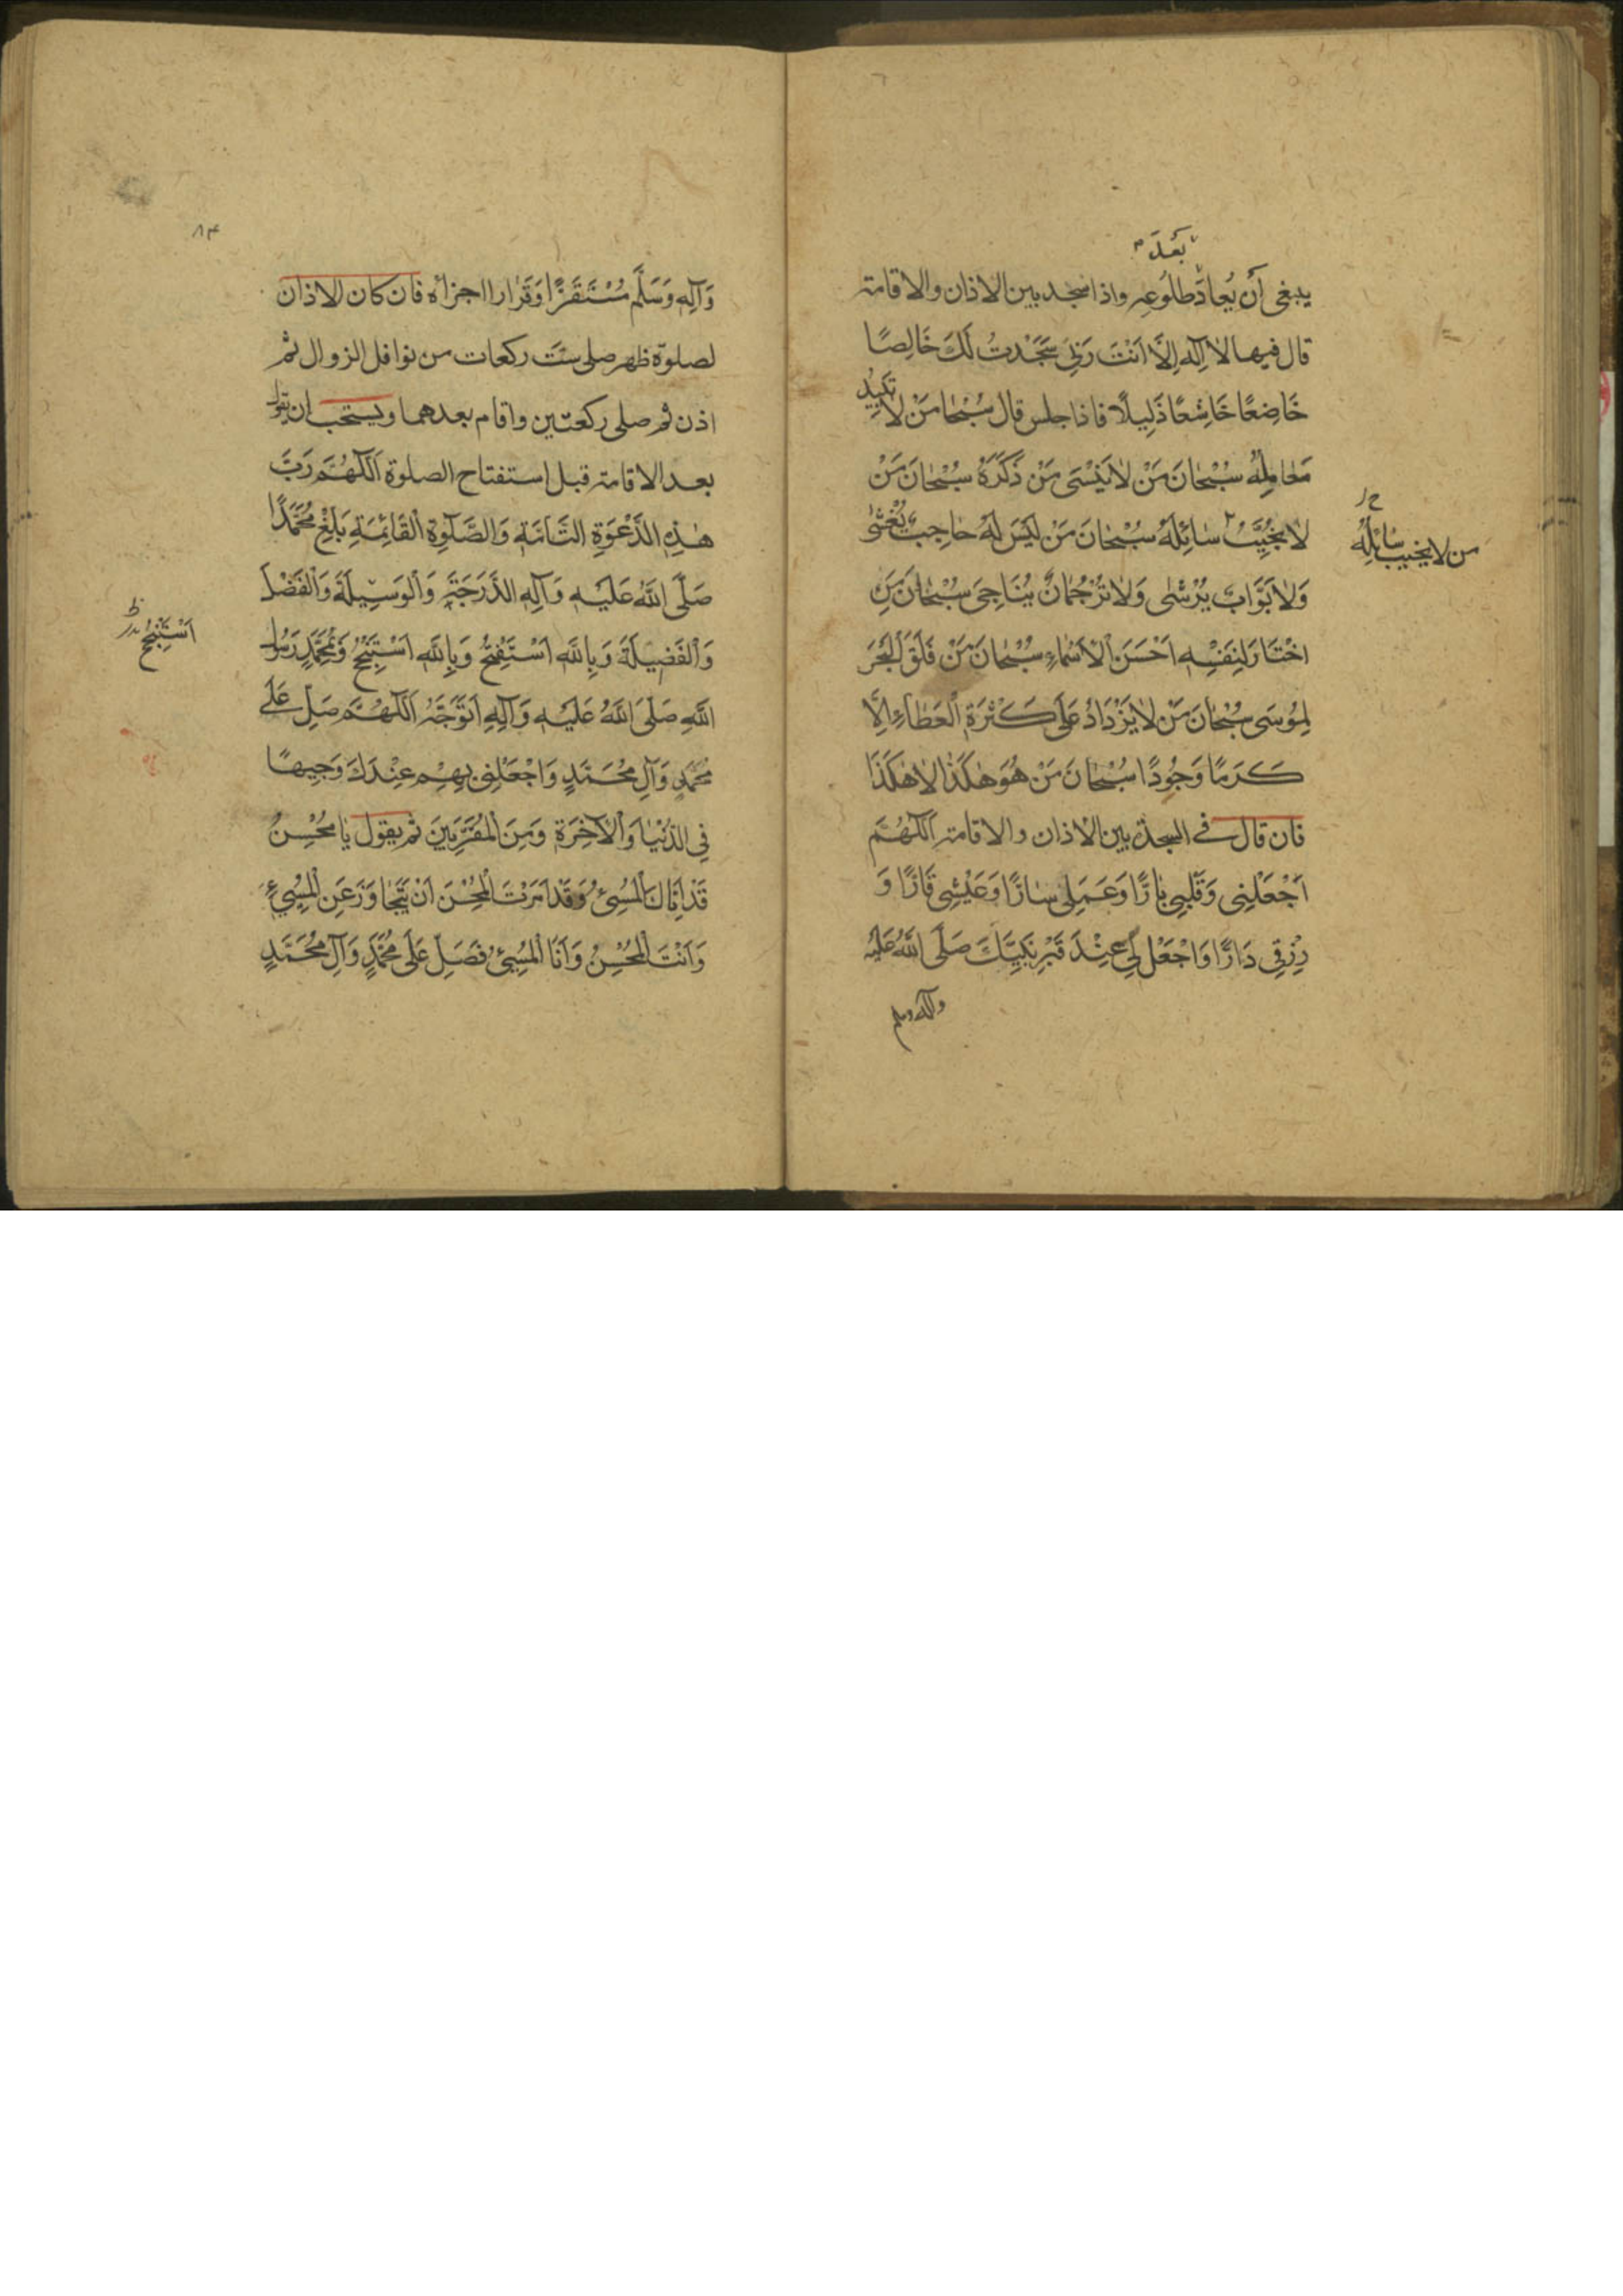 بَعْدَ
ينبغى أَن يُعاد طلُوعِهِ واذا سجد بين الاذان والاقامة
قال فيها لا اِلٰهَ اِلَّا اَنْتَ رَبِّى سَجَدْتُ لَكَ خَالِصًا
خَاضِعًا خَاشِعًا ذَلِيلًا فاذا جلس قال سُبْحٰانَ مَنْ لاٰ تَبِيدُ
مَعٰالِمُهُ سُبْحٰانَ مَنْ لاٰ يَنْسَى مَنْ ذَكَرَهُ سُبْحٰانَ مَنْ
لاٰ يُخَيِّبُ سٰائِلَهُ سُبْحٰانَ مَنْ لَيْسَ لَهُ حٰاجِبٌ يُغْشٰى
من لا يخيب سٰائِلُهُ
وَلاٰ بَوّٰابٌ يُرْشٰى وَلاٰ تَرْجُمٰانٌ يُنَاجِىَ سُبْحٰانَ مَنِ
اخْتَارَ لِنَفْسِهِ اَحْسَنَ الْاَسْمٰاءِ سُبْحٰانَ مَنْ فَلَقَ الْبَحْرَ
لِمُوسَى سُبْحٰانَ مَنْ لاٰ يَزْدَادُ عَلَى كَثْرَةِ الْعَطٰاءِ اِلَّا
كَرَمًا وَجُودًا سُبْحٰانَ مَنْ هُوَ هٰكَذَا لاٰ هٰكَذَا
فان قال فى السجدة بين الاذان والاقامة اَللّٰهُمَّ
اَجْعَلْنِى وَقَلْبِى بٰارًّا وَعَمَلِى سٰارًّا وَعَيْشِى قَارًّا وَ
رِزْقِى دَارًّا وَاجْعَلْ لِى عِنْدَ قَبْرِ نَبِيِّكَ صَلَّى اللّٰهُ عَلَيْهِ
وآله وسلم
٨٣
وَآلِهِ وَسَلَّمَ مُسْتَقَرًّا وَقَرٰارا اجزأه فان كان الاذان
لصلوة ظهر صلى ست ركعات من نوافل الزوال ثم
اذن ثم صلى ركعتين واقام بعدهما ويستحب ان يقول
بعد الاقامة قبل استفتاح الصلوة اَللّٰهُمَّ رَبَّ
هٰذِهِ الدَّعْوَةِ التَّامَّةِ وَالصَّلٰوةِ الْقَائِمَةِ بَلِّغْ مُحَمَّدًا
صَلَّى اللّٰهُ عَلَيْهِ وَآلِهِ الدَّرَجَةَ وَالْوَسِيلَةَ وَالْفَضْلَ
وَالْفَضِيلَةَ وَبِاللّٰهِ اَسْتَفْتِحُ وَبِاللّٰهِ اَسْتَنْجِحُ وَبِمُحَمَّدٍ رَسُولِ
اَسْتَنْجِحُ
اللّٰهِ صَلَّى اللّٰهُ عَلَيْهِ وَآلِهِ اَتَوَجَّهُ اَللّٰهُمَّ صَلِّ عَلَى
مُحَمَّدٍ وَآلِ مُحَمَّدٍ وَاجْعَلْنِى بِهِمْ عِنْدَكَ وَجِيهًا
فِى الدُّنْيٰا وَالْآخِرَةِ وَمِنَ الْمُقَرَّبِينَ ثم يقول يٰا مُحْسِنُ
قَدْ اَتَاكَ الْمُسِىءُ وَقَدْ اَمَرْتَ الْمُحْسِنَ اَنْ يَتَجٰاوَزَ عَنِ الْمُسِىءِ
وَاَنْتَ الْمُحْسِنُ وَاَنَا الْمُسِىءُ فَصَلِّ عَلَى مُحَمَّدٍ وَآلِ مُحَمَّدٍ